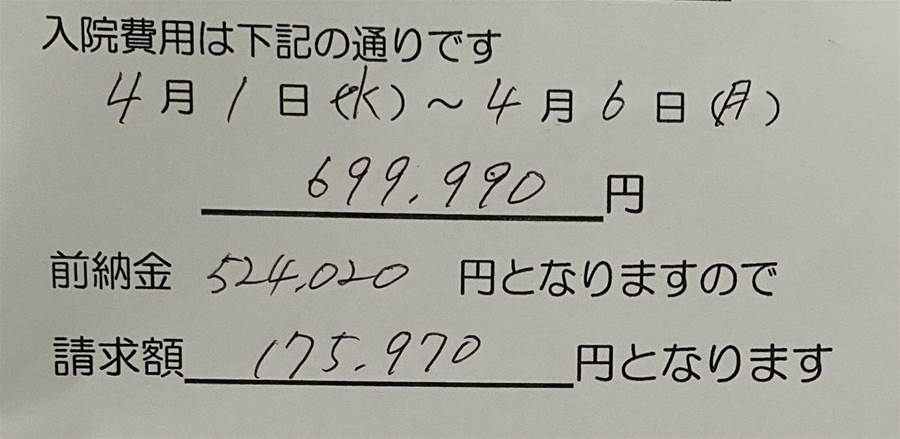 入院費用は下記の通りです
4月1日(水)～4月6日(月)
699.990円
前納金 524,020 円となりますので
請求額 175.970 円となります